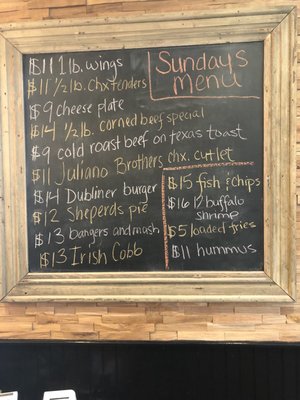 Sundays
Menu
$11 1 lb. wings
$11 1/2 lb. chx tenders
$9 cheese plate
$14 1/2 lb. corned beef special
$9 cold roast beef on texas toast
$11 Juliano Brothers chx. cutlet
$14 Dubliner burger
$12 Sheperds pie
$13 bangers and mash
$13 Irish Cobb
$15 fish & chips
$16 12 buffalo
shrimp
$5 loaded fries
$11 hummus